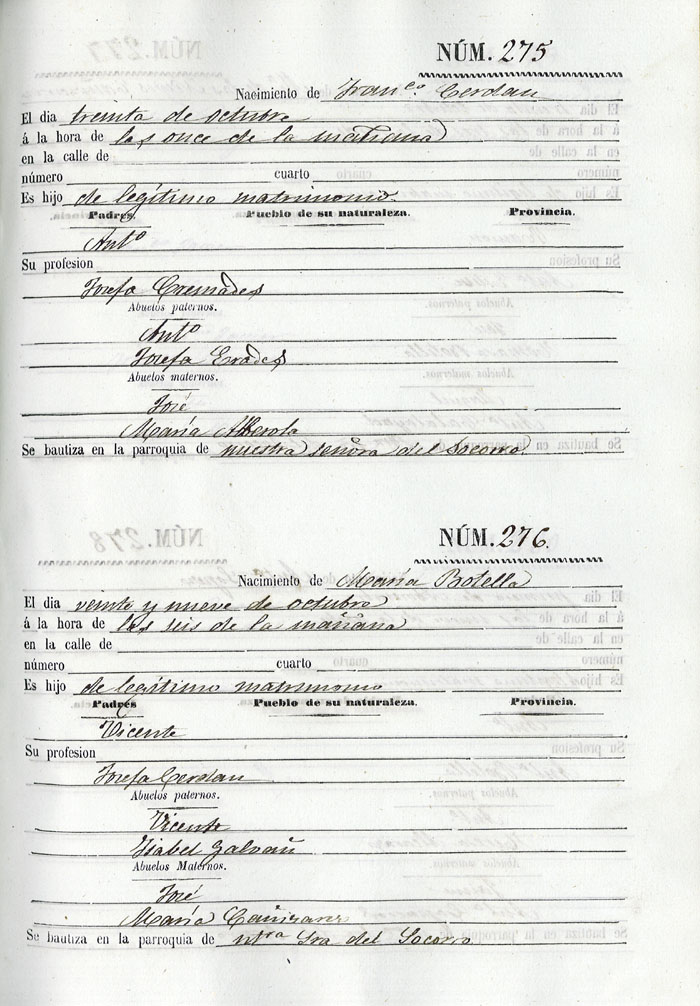 NÚM. 275
Nacimiento de Franco. Cerdan
El dia treinta de octubre
á la hora de las once de la mañana
en la calle de
número cuarto
Es hijo de legítimo matrimonio.
Padres. Pueblo de su naturaleza. Provincia.
Anto
Su profesion
Josefa Cremades
Abuelos paternos.
Anto
Josefa Erades
Abuelos maternos.
José
María Alberola
Se bautiza en la parroquia de nuestra señora del Socorro
NÚM. 276.
Nacimiento de María Botella
El dia veinte y nueve de octubre
á la hora de las seis de la mañana
en la calle de
número cuarto
Es hijo de legítimo matrimonio
Padres Pueblo de su naturaleza. Provincia.
Vicente
Su profesion
Josefa Cerdan
Abuelos paternos.
Vicente
Isabel Galvañ
Abuelos Maternos.
José
María Cañizares
Se bautiza en la parroquia de ntra Sra del Socorro